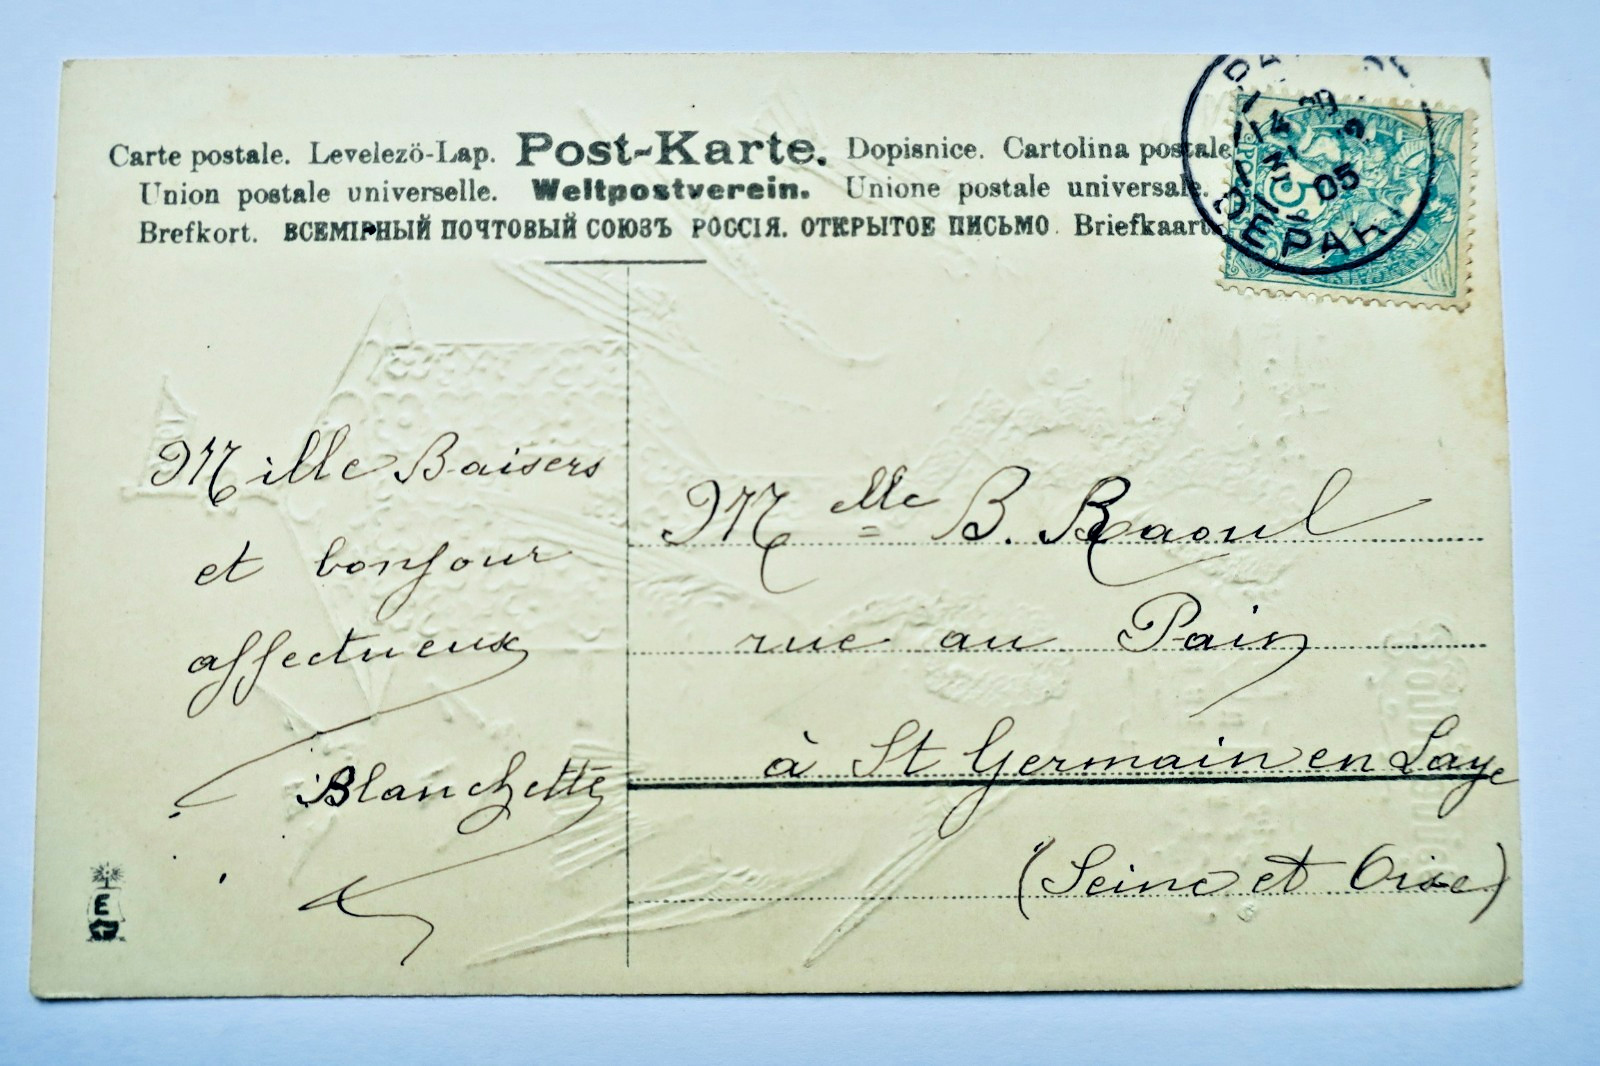 Carte postale. Levelezö-Lap. Post-Karte. Dopisnice. Cartolina postale
Union postale universelle. Weltpostverein. Unione postale universale.
Brefkort. ВСЕМІРНЫЙ ПОЧТОВЫЙ СОЮЗЪ РОССІЯ. ОТКРЫТОЕ ПИСЬМО. Briefkaart
14
31
05
DEPART
5
Mille Baisers
et bonjour
affectueux
Blanchette
Melle B. Raoul
rue au Pain
à St Germain en Laye
(Seine et Oise)
E